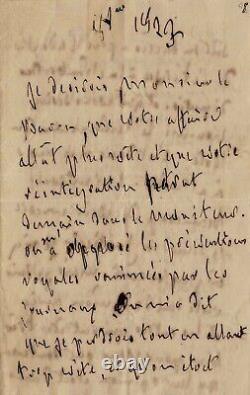 1823
je desirois monsieur le
Baron, que votre affaire
allât plus vite et que votre
réintégration parût
demain dans le moniteur.
on m'a opposé les présentations
royales nommées par les
journaux on m'a dit
que je perdrois tout en allant
trop vite, et qu'on étoit
ebay